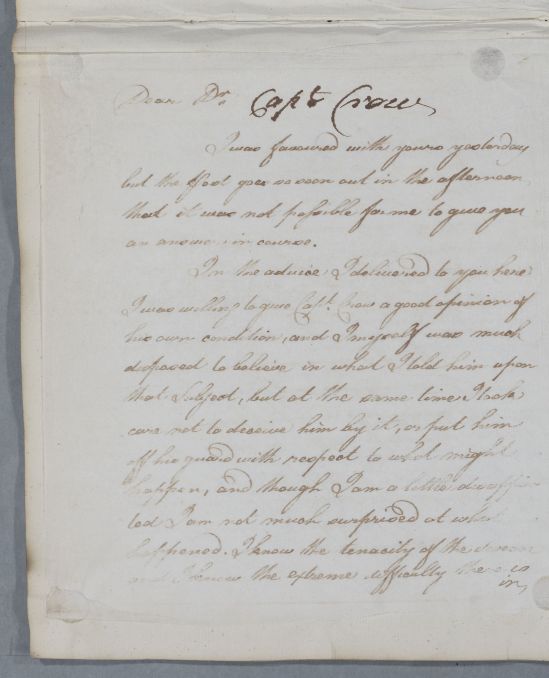 Dear Dr. Capt. Crow
I was favoured with yours yesterday
but the Post goes so soon out in the afternoon
that it was not possible for me to give you
an answer in course.
In the advice I delivered to you here
I was willing to give Capt. Crow a good opinion of
his own condition, and I myself was much
disposed to believe in what I told him upon
that Subject, but at the same time I took
care not to deceive him by it, or put him
off his guard with respect to what might
happen, and though I am a little disappoin
ted I am not much surprised at what
happened. I know the tenacity of the
and I know the extreme difficulty there is
in,